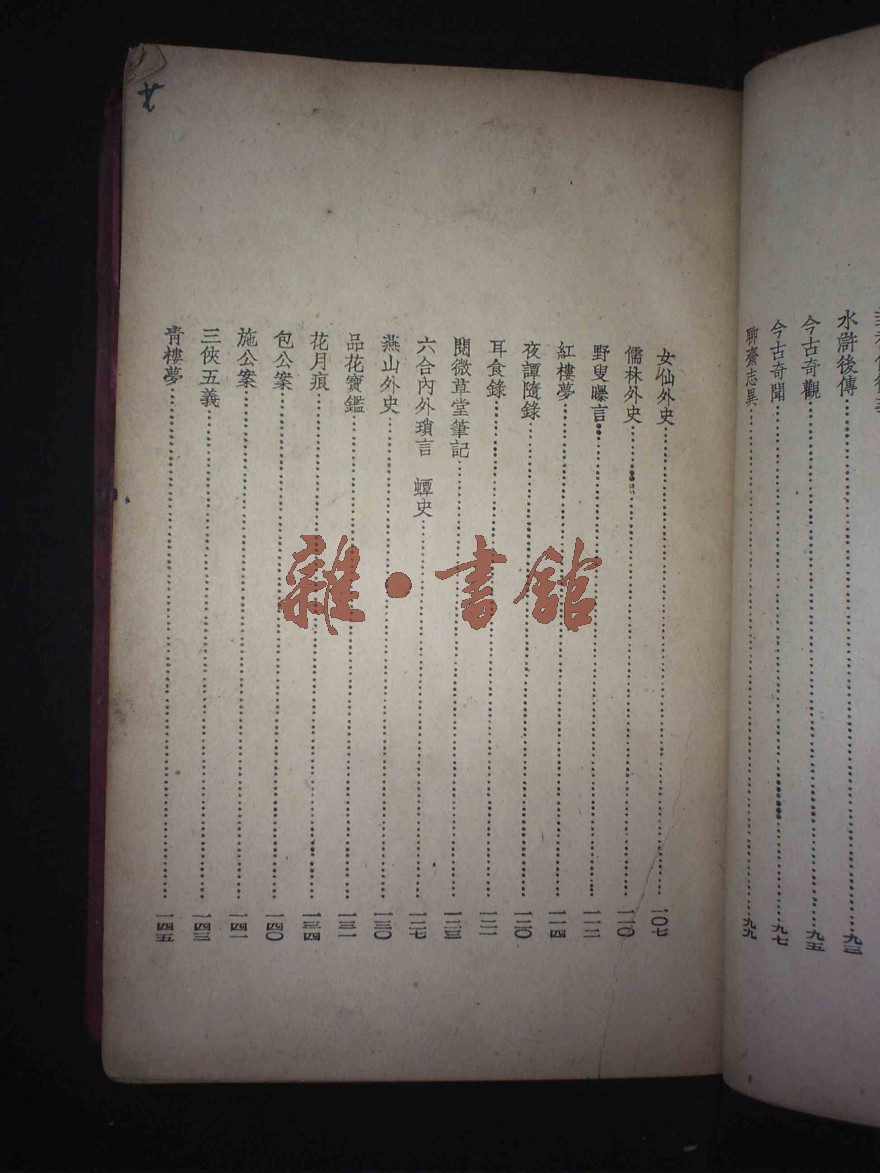 水滸後傳……九三
今古奇觀……九五
今古奇聞……九七
聊齋志異……九九
女仙外史……一〇七
儒林外史……一一〇
野叟曝言……一一二
紅樓夢……一一四
夜譚隨錄……一二〇
耳食錄……一二二
閱微草堂筆記……一二三
六合內外瑣言　蟫史……一二七
燕山外史……一三〇
品花寶鑑……一三一
花月痕……一三四
包公案……一四〇
施公案……一四一
三俠五義……一四三
青樓夢……一四五
雜·書館